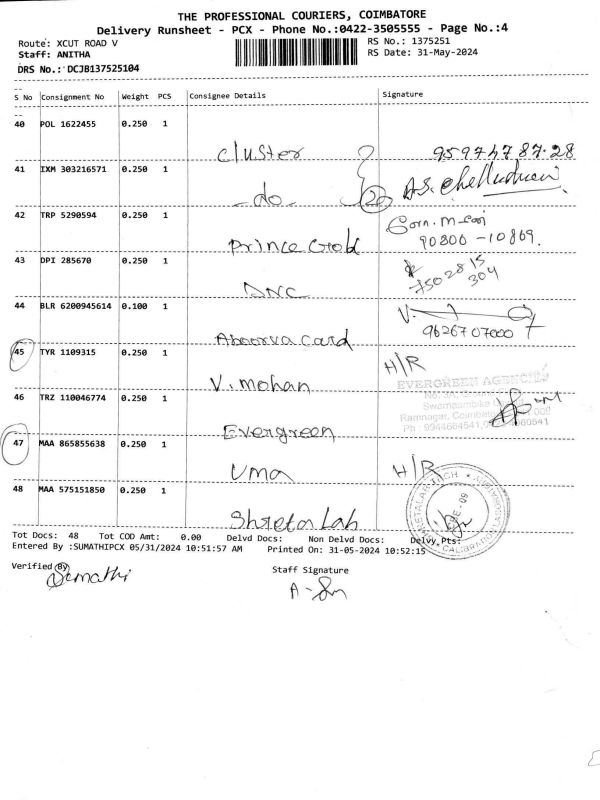 THE PROFESSIONAL COURIERS, COIMBATORE
Delivery Runsheet - PCX - Phone No.:0422-3505555 - Page No.:4
Route: XCUT ROAD V
RS No.: 1375251
Staff: ANITHA
RS Date: 31-May-2024
DRS No.: DCJB137525104
S No Consignment No Weight PCS Consignee Details Signature
40 POL 1622455 0.250 1
Cluster
41 IXM 303216571 0.250 1
-do- 2
42 TRP 5290594 0.250 1
Prince Gold
90806-10869.
43 DPI 285670 0.250 1
DNC
750 28 15
304
44 BLR 6200945614 0.100 1
V.
Aboorva card
9626707000
45 TYR 1109315 0.250 1
H/R
V. mohan
46 TRZ 110046774 0.250 1
EVERGREEN AGENCIES
Ramnagar, Coimbatore
Evergreen
47 MAA 865855638 0.250 1
Uma
H/R
48 MAA 575151850 0.250 1
Lab
Tot Docs: 48 Tot COD Amt: 0.00 Delvd Docs: Non Delvd Docs: Delvy Pts:
Entered By :SUMATHIPCX 05/31/2024 10:51:57 AM Printed On: 31-05-2024 10:52:15
Verified By
Sumathi
Staff Signature